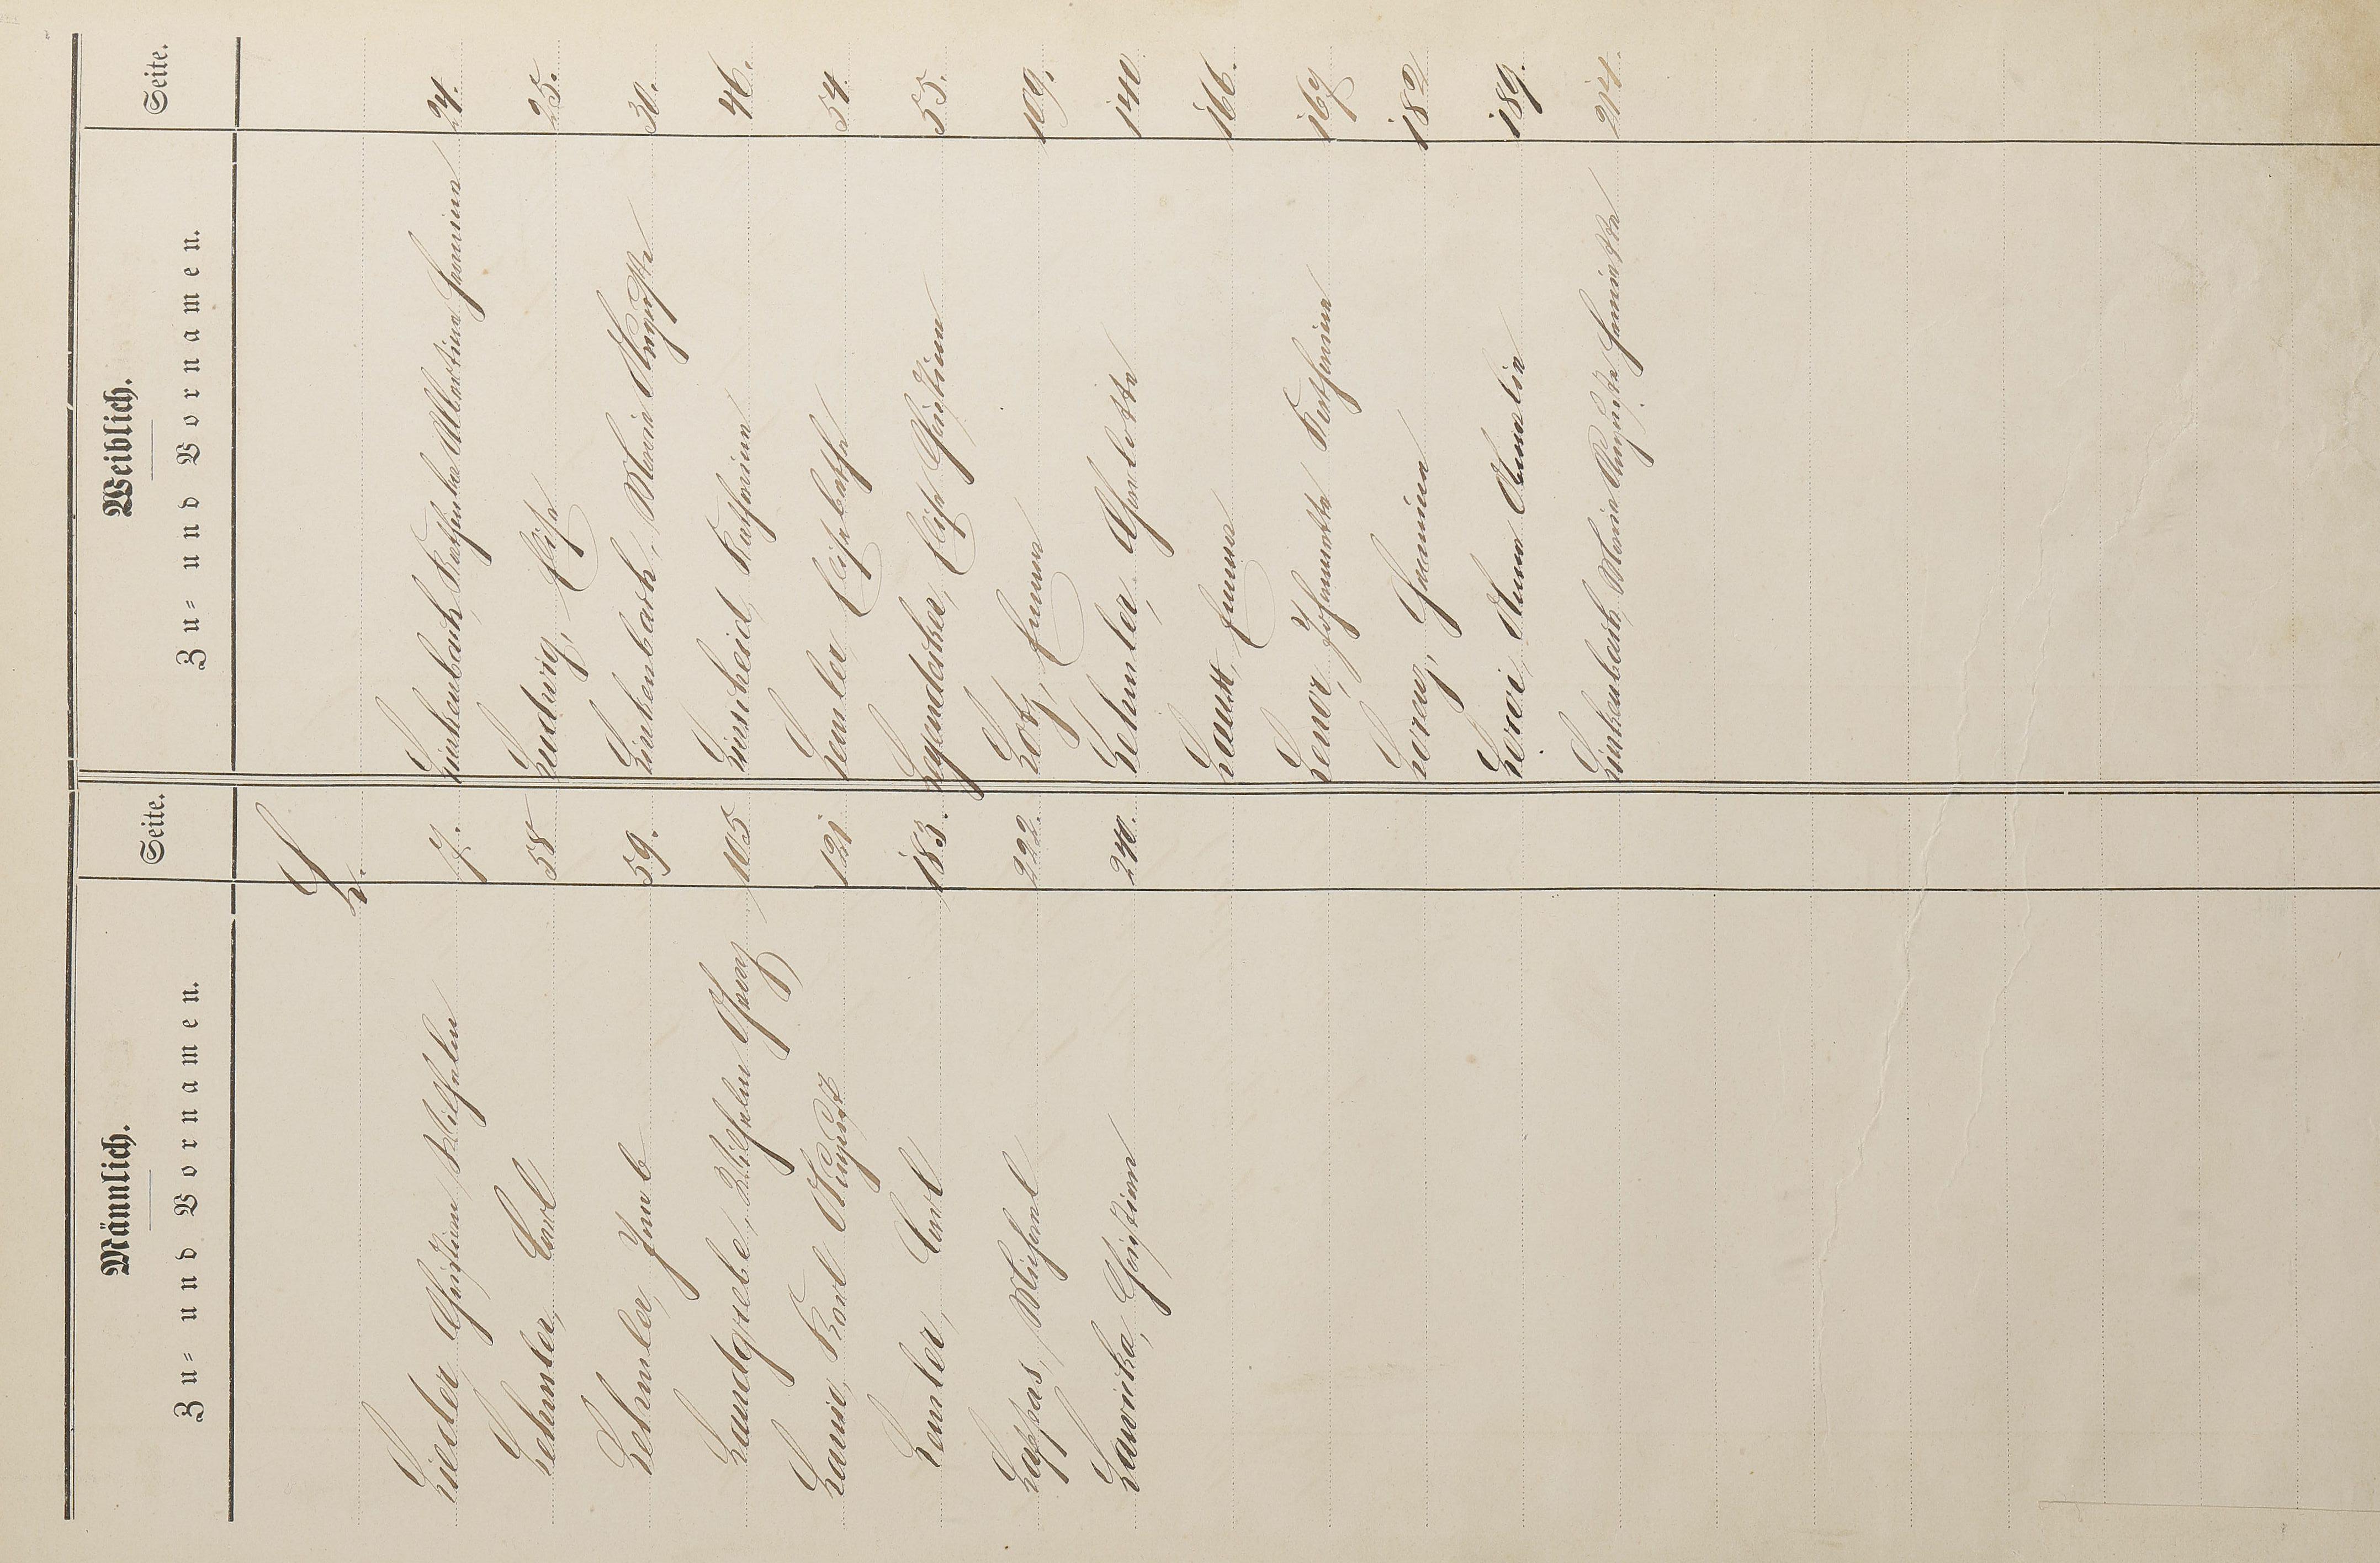 Männlich. Weiblich.
Zu= und Vornamen. Seite. Zu= und Vornamen. Seite.
L.
Lieder, Christian Wilhelm 7. Linkenbach, Katharina Albertina Hermina 24.
Lehmler, Carl 58 Ludwig, Elise 25.
Lehmler, Jacob 59. Linkenbach, Maria Auguste 30.
Landgrebe, Wilhelm Georg 105 Linscheid, Katharina 46.
Karl August 121 Lemler, Elisabetha 54.
Lemler, Carl 183. Lagendecker, Elise Christina 55.
Lappas, Michael 222. Lotz, Emma 109.
Lawicka, Christian 240. Lehmler, Charlotte 140
Laux, Emma 166.
Lenor, Johannette Katharina 167
Loray, Hermina 182
Loroi, Anna Amalia 189.
Linkenbach, Maria Auguste Henriette 214.